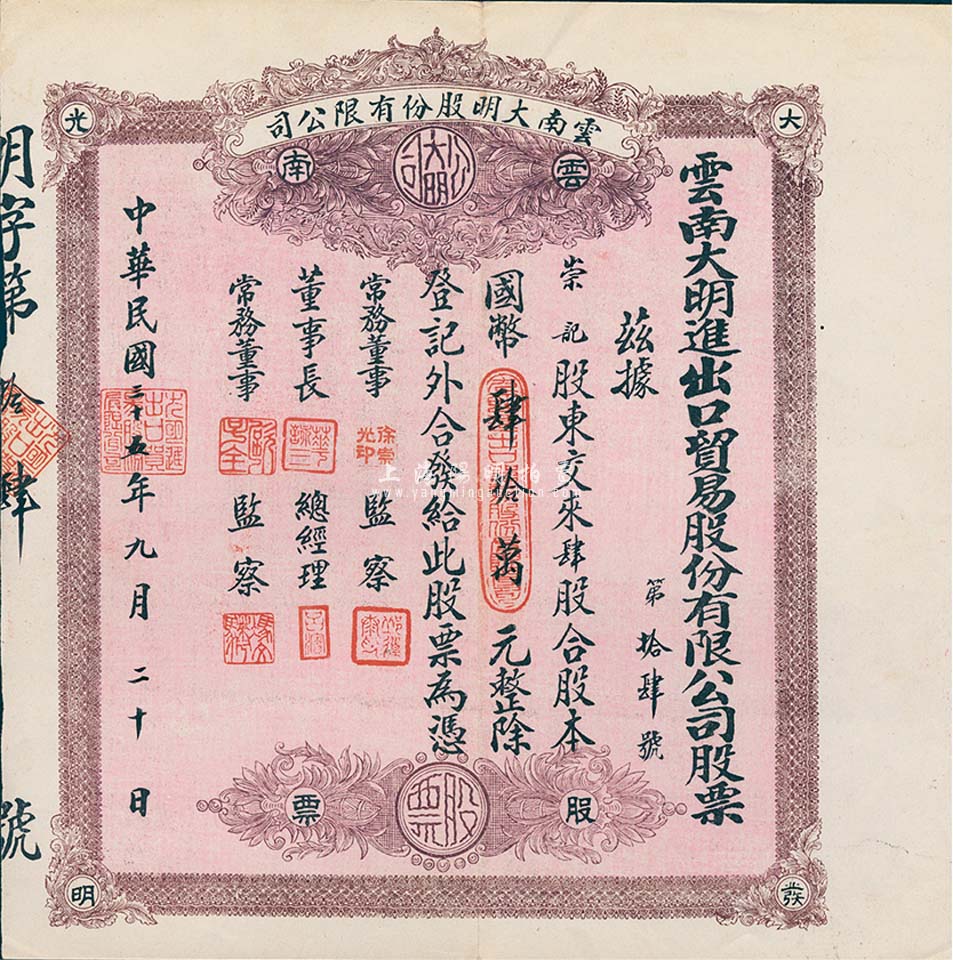 雲南大明股份有限公司
大
光
發
明
雲
南
大明公司
雲南大明進出口貿易股份有限公司股票
第拾肆號
茲據
崇記股東交來肆股合股本
國幣肆拾萬元整除
登記外合發給此股票為憑
常務董事
徐崇光印
監察
董事長
總經理
常務董事
監察
中華民國三十五年九月二十日
明字第拾肆號
股
票
股票
上海陽明拍賣
www.yangmingauction.com